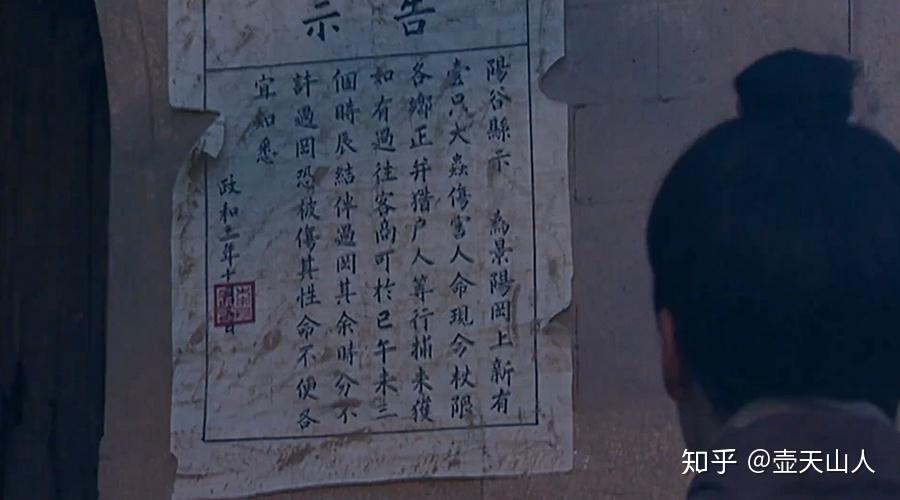 告示
陽谷縣示 為景陽岡上新有
壹只大蟲傷害人命現今杖限
各鄉正并猎户人等行捕未獲
如有過往客商可於巳午未三
個時辰結伴過岡其余時分不
許過岡恐被傷其性命不便各
宜知悉
政和三年十日
知乎 @壶天山人